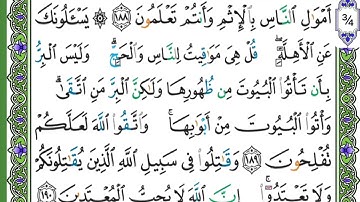 أَمْوَٰلِ ٱلنَّاسِ بِٱلْإِثْمِ وَأَنتُمْ تَعْلَمُونَ ١٨٨ ۞ يَسْـَٔلُونَكَ
عَنِ ٱلْأَهِلَّةِ ۖ قُلْ هِىَ مَوَٰقِيتُ لِلنَّاسِ وَٱلْحَجِّ ۗ وَلَيْسَ ٱلْبِرُّ
بِأَن تَأْتُوا۟ ٱلْبُيُوتَ مِن ظُهُورِهَا وَلَـٰكِنَّ ٱلْبِرَّ مَنِ ٱتَّقَىٰ ۗ
وَأْتُوا۟ ٱلْبُيُوتَ مِنْ أَبْوَٰبِهَا ۚ وَٱتَّقُوا۟ ٱللَّهَ لَعَلَّكُمْ
تُفْلِحُونَ ١٨٩ وَقَـٰتِلُوا۟ فِى سَبِيلِ ٱللَّهِ ٱلَّذِينَ يُقَـٰتِلُونَكُمْ
وَلَا تَعْتَدُوٓا۟ ۚ إِنَّ ٱللَّهَ لَا يُحِبُّ ٱلْمُعْتَدِينَ ١٩٠
3/4